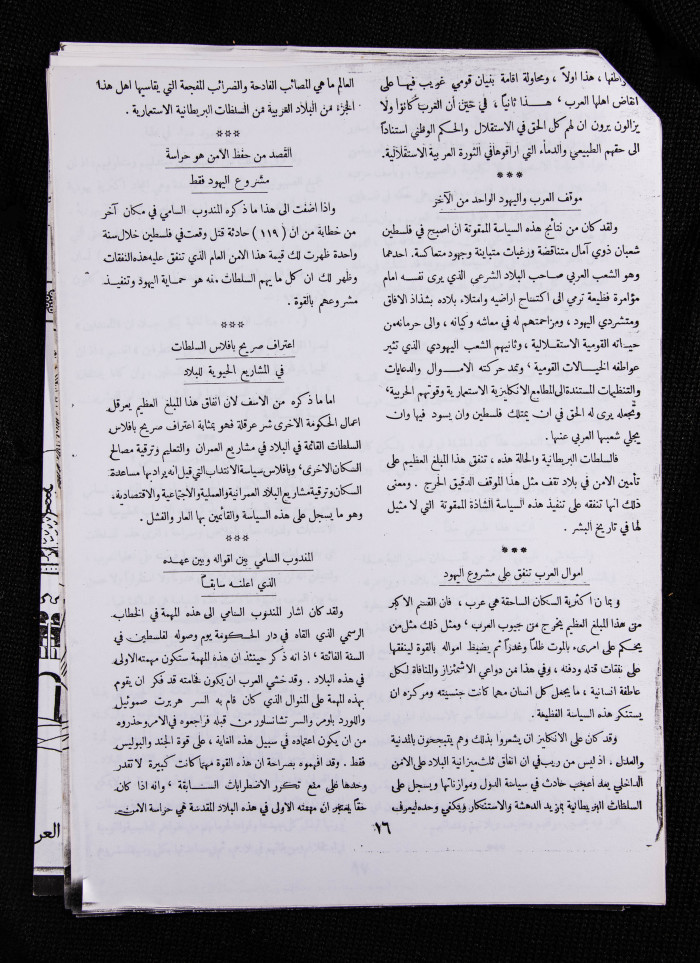 ، هذا اولاً ، ومحاولة اقامة بنيان قومي غريب فيها على
انقاض اهلها العرب ، هـذا ثانياً ، في حين أن العرب كانوا ولا
يزالون يرون ان لهم كل الحق في الاستقلال والحكم الوطني استناداً
الى حقهم الطبيعي والدماء التي اراقوها في الثورة العربية الاستقلالية.
***
موقف العرب واليهود الواحد من الآخر
ولقد كان من نتائج هذه السياسة الممقوتة ان اصبح في فلسطين
شعبان ذوي آمال متناقضة ورغبات متباينة وجهود متعاكسة. احدهما
وهو الشعب العربي صاحب البلاد الشرعي الذي يرى نفسه امام
مؤامرة فظيعة ترمي الى اكتساح اراضيه وامتلاء بلاده بشذاذ الافاق
ومتشردي اليهود ، ومزاحمتهم له في معاشه وكيانه ، والى حرمانه من
حيـاته القومية الاستقـلالية ، وثانيهم الشعب اليهودي الذي تثير
عواطفه الخيـالات القومية ، وتمد حركته الامـوال والدعايات
والتنظيمات المستندة الى المطامع الانكليزية الاستعمارية وقوتهم الحربية،
وتجعله يرى له الحق في ان يمتلك فلسطين وان يسود فيها وان
يجلي شعبها العربي عنها .
فالسلطات البريطانية والحالة هذه ، تنفق هذا المبلغ العظيم على
تأمين الامن في بلاد تقف مثل هذا الموقف الدقيق الحرج . ومعنى
ذلك انها تنفقه على تنفيذ هذه السياسة الشاذة الممقوتة التي لا مثيل
لها في تاريخ البشر .
***
اموال العرب تنفق على مشروع اليهود
وبما ان اكثرية السكان الساحقة هي عرب ، فان القسم الاكبر
من هذا المبلغ العظيم يخرج من جيوب العرب ، ومثل ذلك مثل من
يحكم على امرىء بالموت ظلماً وغدراً ثم يضبط امواله بالقوة لينفقها
على نفقات قتله ودفنه ، وفي هذا من دواعي الاشمئزاز والمنافاة لكل
عاطفة انسانية ، ما يجعل كل انسان مهما كانت جنسيته ومركزه ان
يستنكر هذه السياسة الفظيعة .
وقد كان على الانكليز ان يشعروا بذلك وهم يتبجحون بالمدنية
والعدل ، اذ ليس من ريب في ان انفاق ثلث ميزانية البلاد على الامن
الداخلي يعد اعجب حادث في سياسة الدول وموازناتها ويسجل على
السلطات البريطانية مزيد الدهشة والاستنكار ويكفي وحده ليعرف
العالم ما هي المصائب الفادحة والضرائب المفجعة التي يقاسيها اهل هذا
الجزء من البلاد العربية من السلطات البريطانية الاستعمارية .
***
القصد من حفظ الأمن هو حراسة
مشروع اليهود فقط
واذا اضفت الى هذا ما ذكره المندوب السامي في مكان آخر
من خطابة من ان ( ١١٩ ) حادثة قتل وقعت في فلسطين خلال سنة
واحدة ظهرت لك قيمة هذا الامن العام الذي تنفق عليه هذه النفقات
وظهر لك ان كل ما يهم السلطات منه هو حمـاية اليهود وتنفيـذ
مشروعهم بالقوة .
***
اعتراف صريح بافلاس السلطات
في المشاريع الحيوية للبلاد
اما ما ذكره من الاسف لان انفاق هذا المبلغ العظيم يعرقل
اعمال الحكومة الاخرى شر عرقلة فهو بمثابة اعتراف صريح بافلاس
السلطات القائمة في البلاد في مشاريع العمران والتعليم وترقية مصالح
السكان الاخرى، وبافلاس سياسة الانتداب التي قيل انه يراد بها مساعدة
السكان وترقية مشاريع البلاد العمرانية والعملية والاجتماعية والاقتصادية،
وهو ما يسجل على هذه السياسة والقائمين بها العار والفشل .
***
المندوب السامي بين اقواله وبين عهـده
الذي اعلنـه سابقـاً
ولقد كان اشار المندوب السامي الى هذه المهمة في الخطاب
الرسمي الذي القاه في دار الحكـومة يوم وصوله لفلسطين في
السنة الفائتة ، اذ انه ذكر حينئذ ان هذه المهمة ستكون مهمته الاولى
في هذه البلاد . وقد خشي العرب ان يكون فخامته قد فكر ان يقوم
بهذه المهمة على المنوال الذي كان قام به السر هربرت صموئيل
واللورد بلومر والسر تشانسلور من قبله فراجعوه في الامر وحذروه
من ان يكون اعتماده في سبيل هذه الغاية ، على قوة الجند والبوليس
فقط . وقد افهموه بصراحة ان هذه القوة مهما كانت كبيرة لا تقدر
وحدها على منع تكرر الاضطرابات السـابقة ، وانه اذا كان
حقاً يعتبر ان مهمته الاولى في هذه البلاد المقدسة هي حراسة الامن
١٦
العر